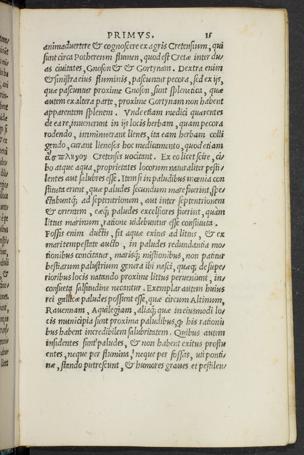 PRIMVS. 15
animaduertere & cognoscere ex agris Cretensium, qui
sunt circa Potherenm flumen, quod est Cretæ inter du
as ciuitates, Gnoson & & Gortynam. Dextra enim
& sinistra eius fluminis, pascuntur pecora, sed ex ijs,
quæ pascuntur proxime Gnoson, sunt splenetica, quæ
autem ex altera parte, proxime Gortynam non habent
apparentem splenem. Vnde etiam medici quærentes
de ea re, inuenerunt in ijs locis herbam, quam pecora
rodendo, imminuerant lienes, ita eam herbam colli
gendo, curant lienosos hoc medicamento, quod etiam
ἄσπληνος Cretensis uocitant. Ex eo licet scire, ci
bo atque aqua, proprietates locorum naturaliter pesti
lentes aut salubres esse. Item si in paludibus mœnia con
stituta erunt, quæ paludes secundum mare fuerint, spe
ctabuntq; ad septentrionem, aut inter septentrionem
& orientem, eæq; paludes excelsiores fuerint, quàm
littus marinum, ratione uidebuntur esse constituta.
Fossis enim ductis, fit aquæ exitus ad littus, & ex
mari tempestate aucto, in paludes redundantia mo
tionibus concitatur, marisq; mistionibus, non patitur
bestiarum palustrium genera ibi nasci, quæq; de supe
rioribus locis natando proxime littus perueniunt, in
consueta salsitudine necantur. Exemplar autem huius
rei gallicæ paludes possunt esse, quæ circum Altinum,
Rauennam, Aquilegiam, aliaq; quæ in eiusmodi lo
cis municipia sunt proxima paludibus, q; his rationi
bus habent incredibilem salubritatem. Quibus autem
insidentes sunt paludes, & non habent exitus proflu
entes, neque per flumina, neque per fossas, uti ponti
næ, stando putrescunt, & humores graues et pestilen